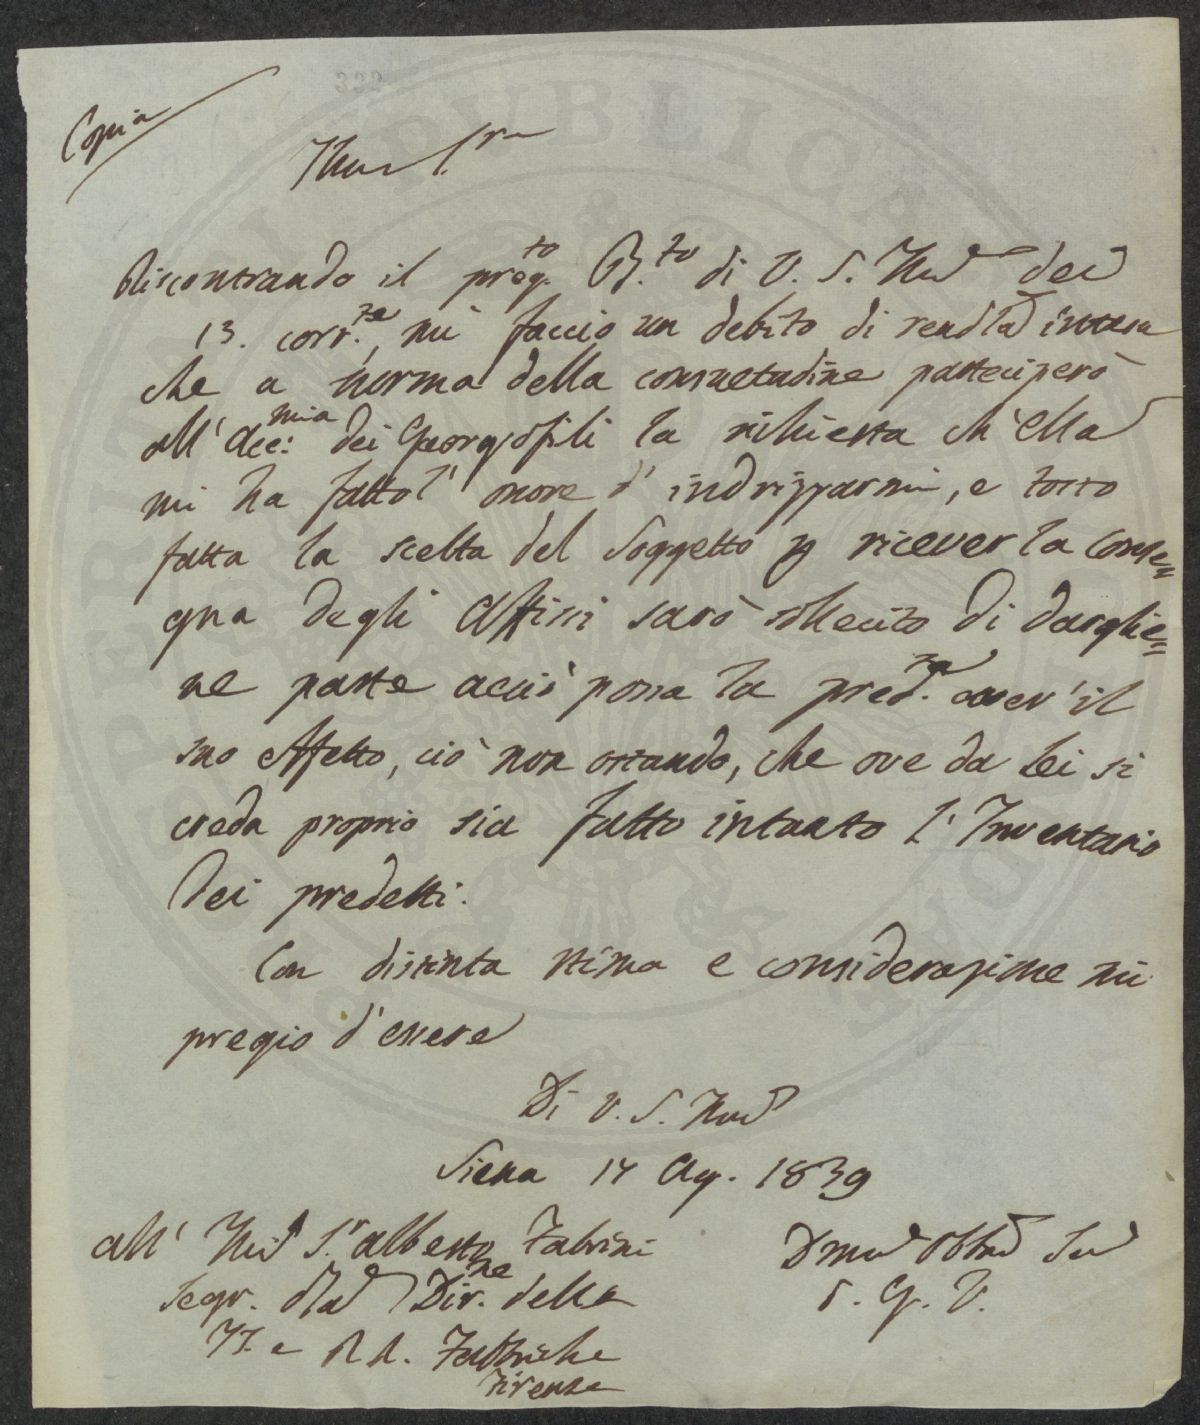 Copia
Illmo Sre
Riscontrando il preg.to B.to di V. S. Illma del
13. corr.te, mi faccio un debito di renderla intesa
che a norma della consuetudine parteciperò
all' Acc:mia dei Georgofili la richiesta ch'Ella
mi ha fatto l' onore d' indrizzarmi, e tosto
fatta la scelta del Soggetto p ricever la Conse=
gna degli Affissi sarò sollecito di darglie=
ne parte acciò possa la pred.ta aver' il
suo effetto, ciò non ostando, che ove da Lei si
creda proprio sia fatto intanto l' Inventario
dei predetti.
Con distinta stima e considerazione mi
pregio d' essere
Di V. S. Illma
Siena 14 Ag. 1839
All' Illmo S.r Alberto Fabrini
Segr. della Dir.ne della
II. e RR. Fabbriche
Firenze
Dmo Obbmo Se
S. G. V.